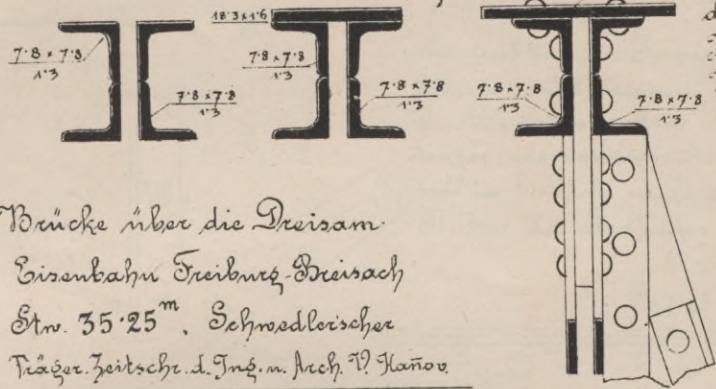 18·3×1·6
7·8 × 7·8
1·3
7·8 × 7·8
1·3
7·8 × 7·8
1·3
7·8 × 7·8
1·3
7·8 × 7·8
1·3
7·8 × 7·8
1·3
Brücke über die Dreisam
Eisenbahn Freiburg-Breisach
Stw. 35·25 m, Schwedlerscher
Träger. Zeitschr. d. Ing. u. Arch. V. Hañov.